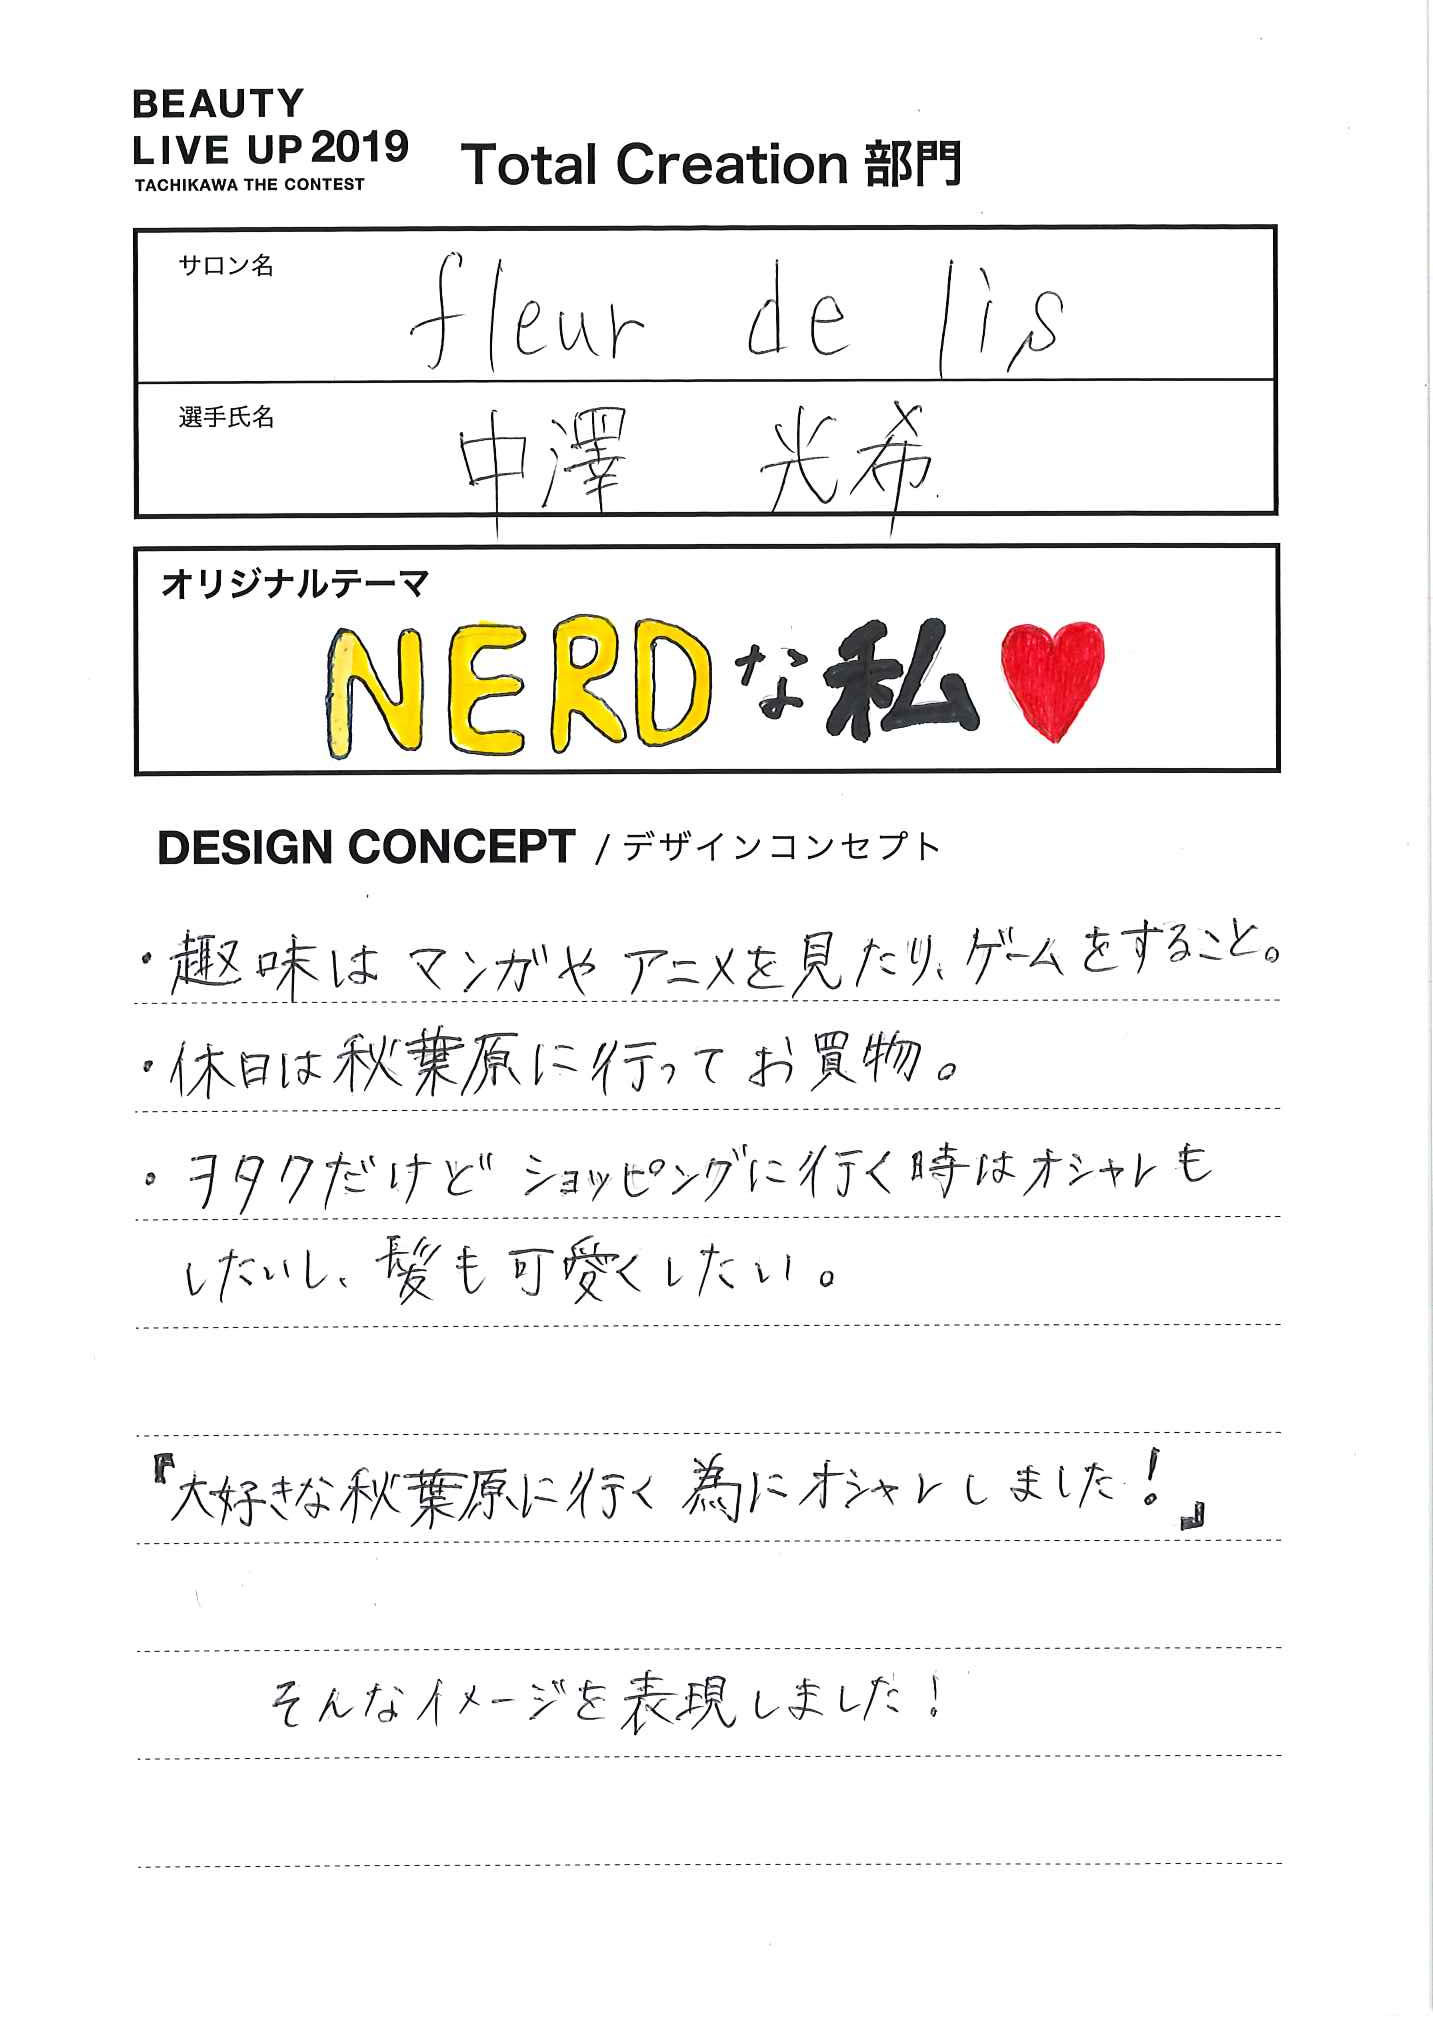 BEAUTY
LIVE UP 2019
TACHIKAWA THE CONTEST
Total Creation 部門
サロン名
fleur de lis
選手氏名
中澤 光希
オリジナルテーマ
NERDな私♥
DESIGN CONCEPT / デザインコンセプト
・趣味はマンガやアニメを見たり、ゲームをすること。
・休日は秋葉原に行ってお買物。
・ヲタクだけどショッピングに行く時はオシャレも
したいし、髪も可愛くしたい。
『大好きな秋葉原に行く為にオシャレしました!』
そんなイメージを表現しました!